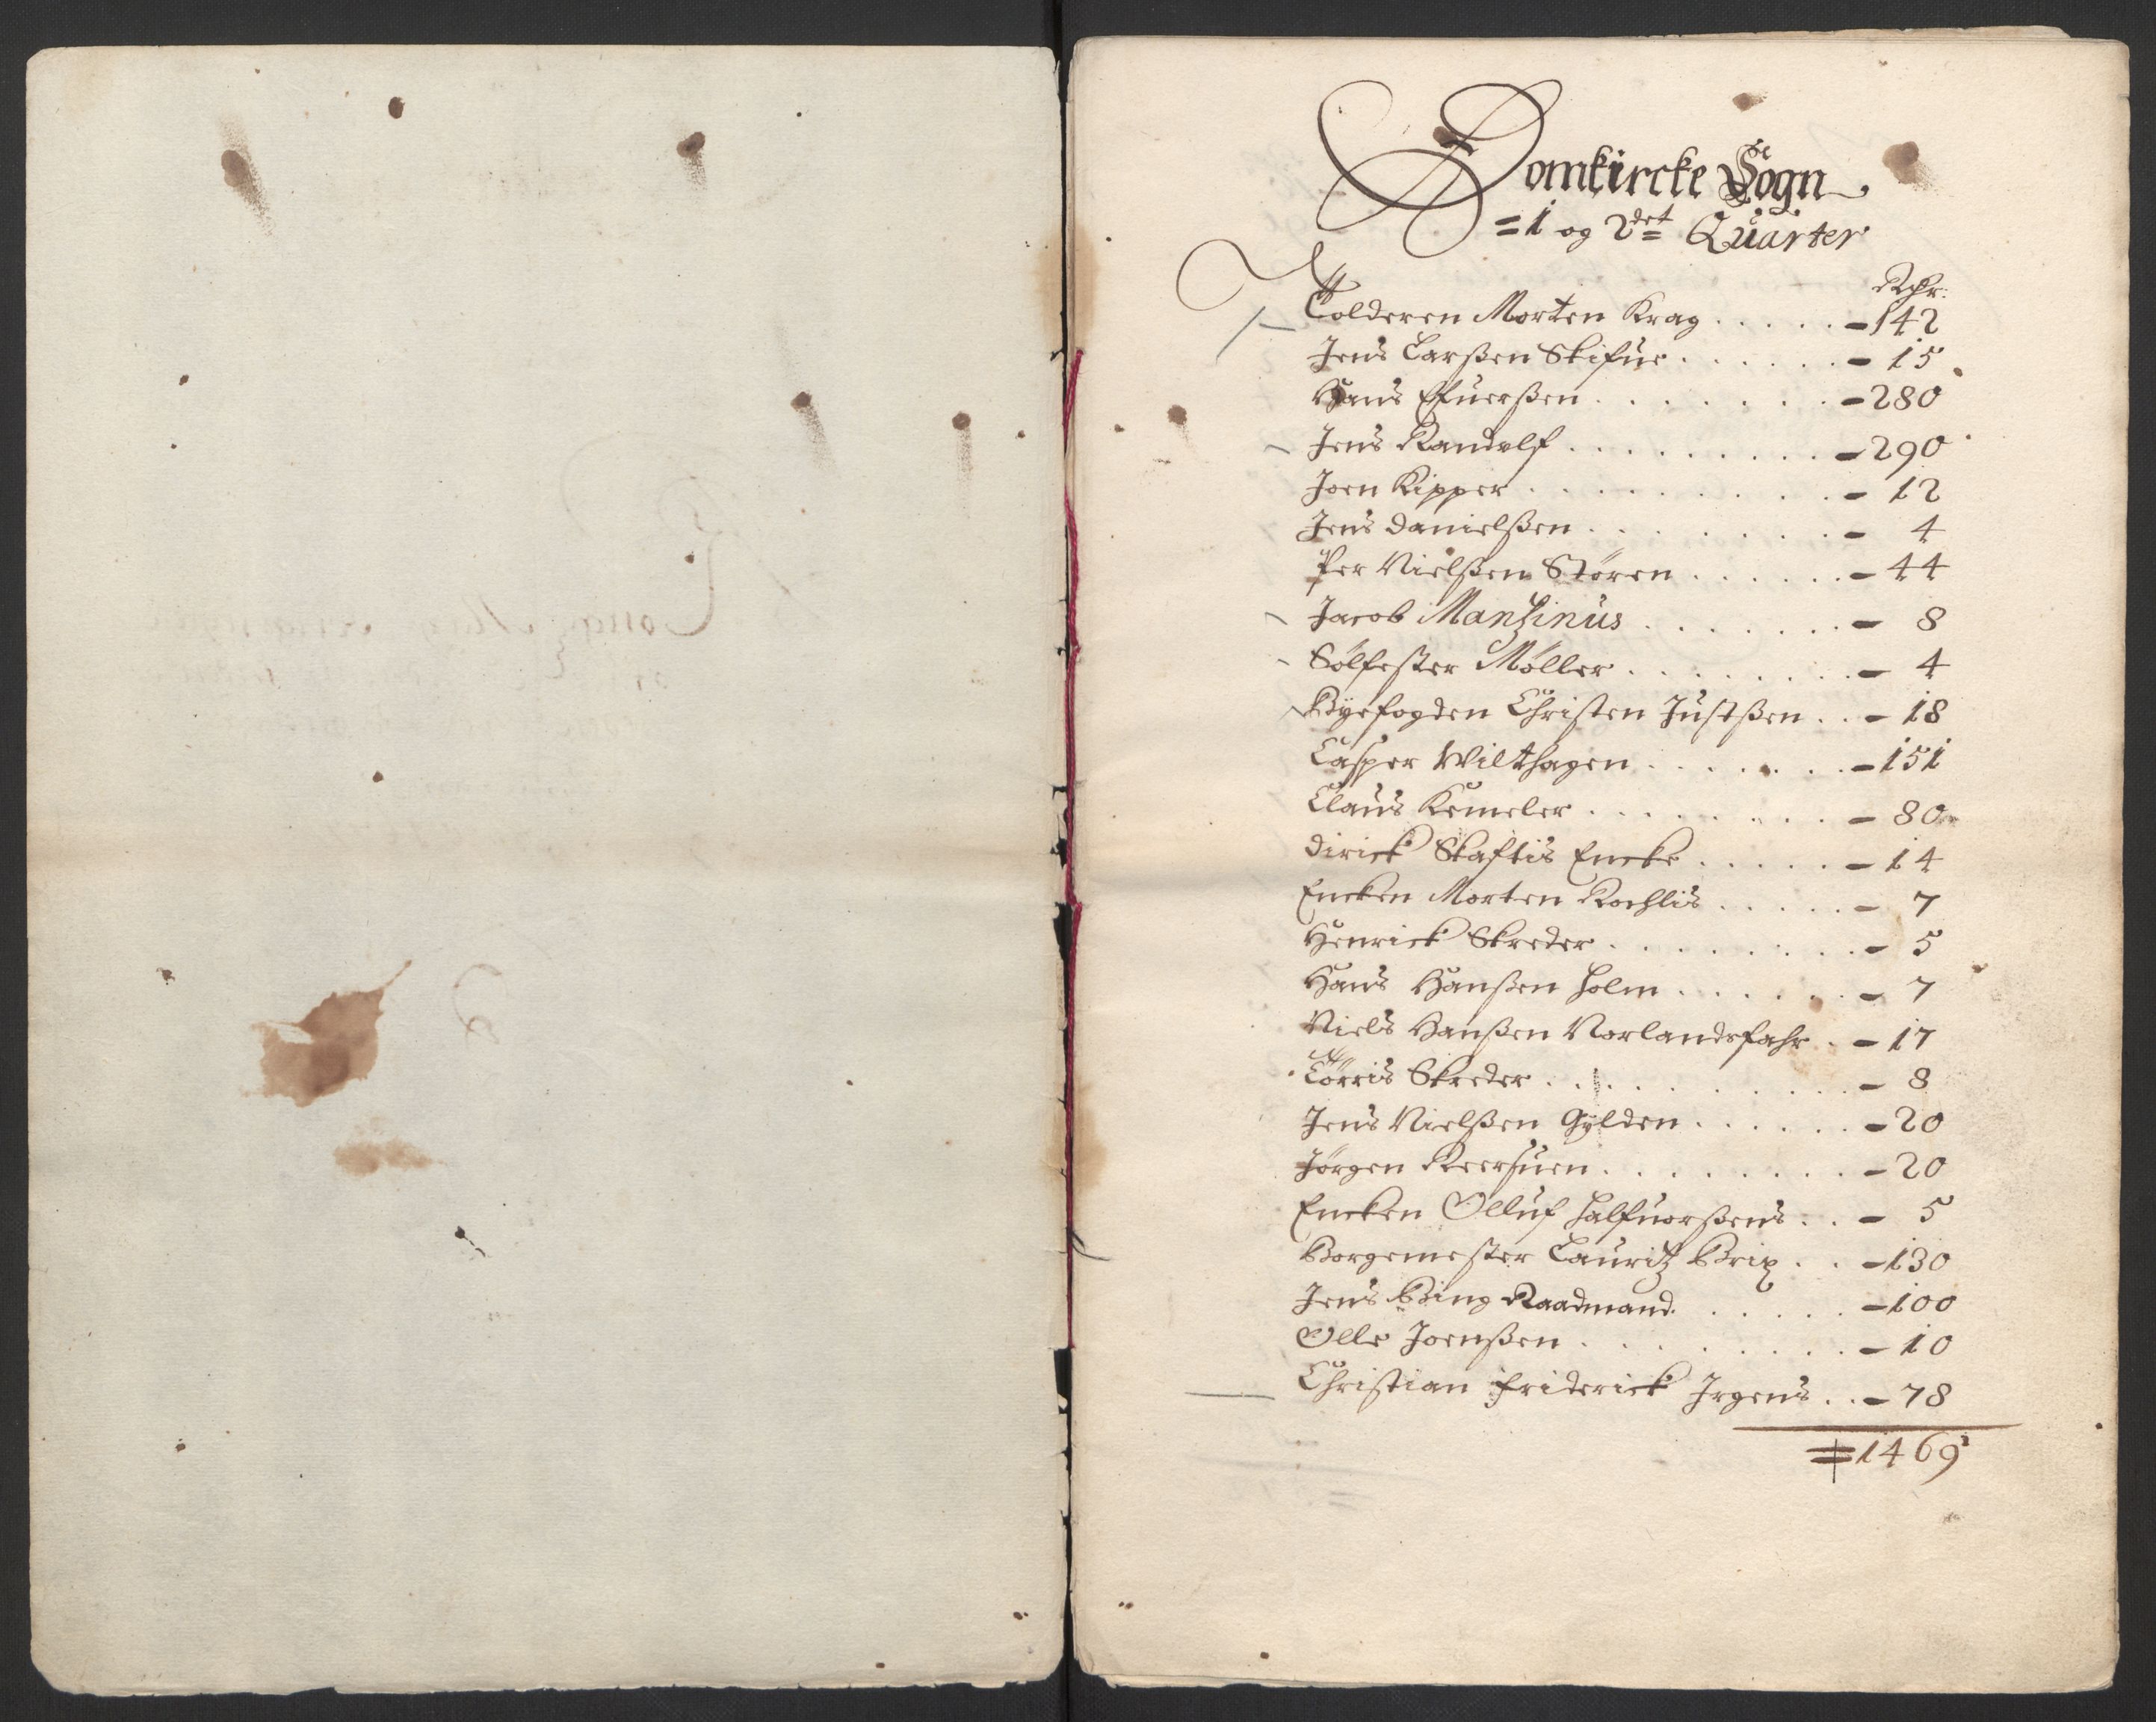 Domkircke Sogn
= 1 og 2det Quarter
Rdr:
Tolderen Morten Krag . . . . . - 142
Jens Larßen Skifue . . . . . . - 15
Hans Efuerßen . . . . . . . . - 280
Jens Randulf . . . . . . . . . - 290
Joen Kipper . . . . . . . . . - 12
Jens Danielßen . . . . . . . . - 4
Per Nielßen Stören . . . . . . - 44
Jacob Mantzinus . . . . . . . - 8
Sölfester Möller . . . . . . . . - 4
Byefogden Christen Justßen . . - 18
Casper Wilthagen . . . . . . . - 151
Claus Kemeler . . . . . . . . - 80
Dirick Skaftis Encke . . . . . - 14
Encken Morten Rochlis . . . . . - 7
Henrick Skreder . . . . . . . . - 5
Hans Hanßen Holm . . . . . . - 7
Niels Hanßen Norlandsfahr . . - 17
Törris Skreder . . . . . . . . . - 8
Jens Nielßen Gylden . . . . . . - 20
Jörgen Reersuen . . . . . . . . - 20
Encken Olluf Halfuorßens . . - 5
Borgemester Lauritz Brix . . - 130
Jens Bing Raadmand . . . . . - 100
Olle Joenßen . . . . . . . . . - 10
Christian Friderick Jrgens . . - 78
= 1469